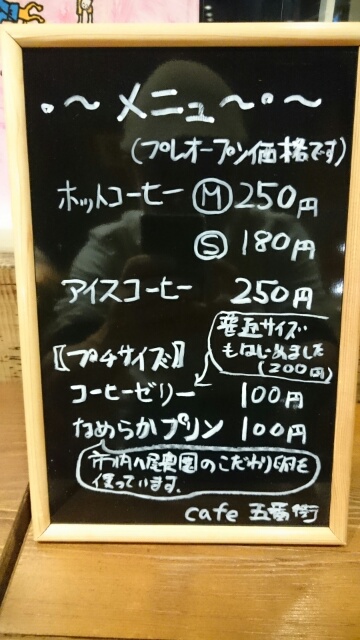 ・〜メニュー〜・〜
(プレオープン価格です)
ホットコーヒー Ⓜ 250円
Ⓢ 180円
アイスコーヒー 250円
サイズ
もはじめました
(200円)
【プチサイズ】
コーヒーゼリー 100円
なめらかプリン 100円
市内八尾農園のこだわり卵を
使っています。
cafe 五番街